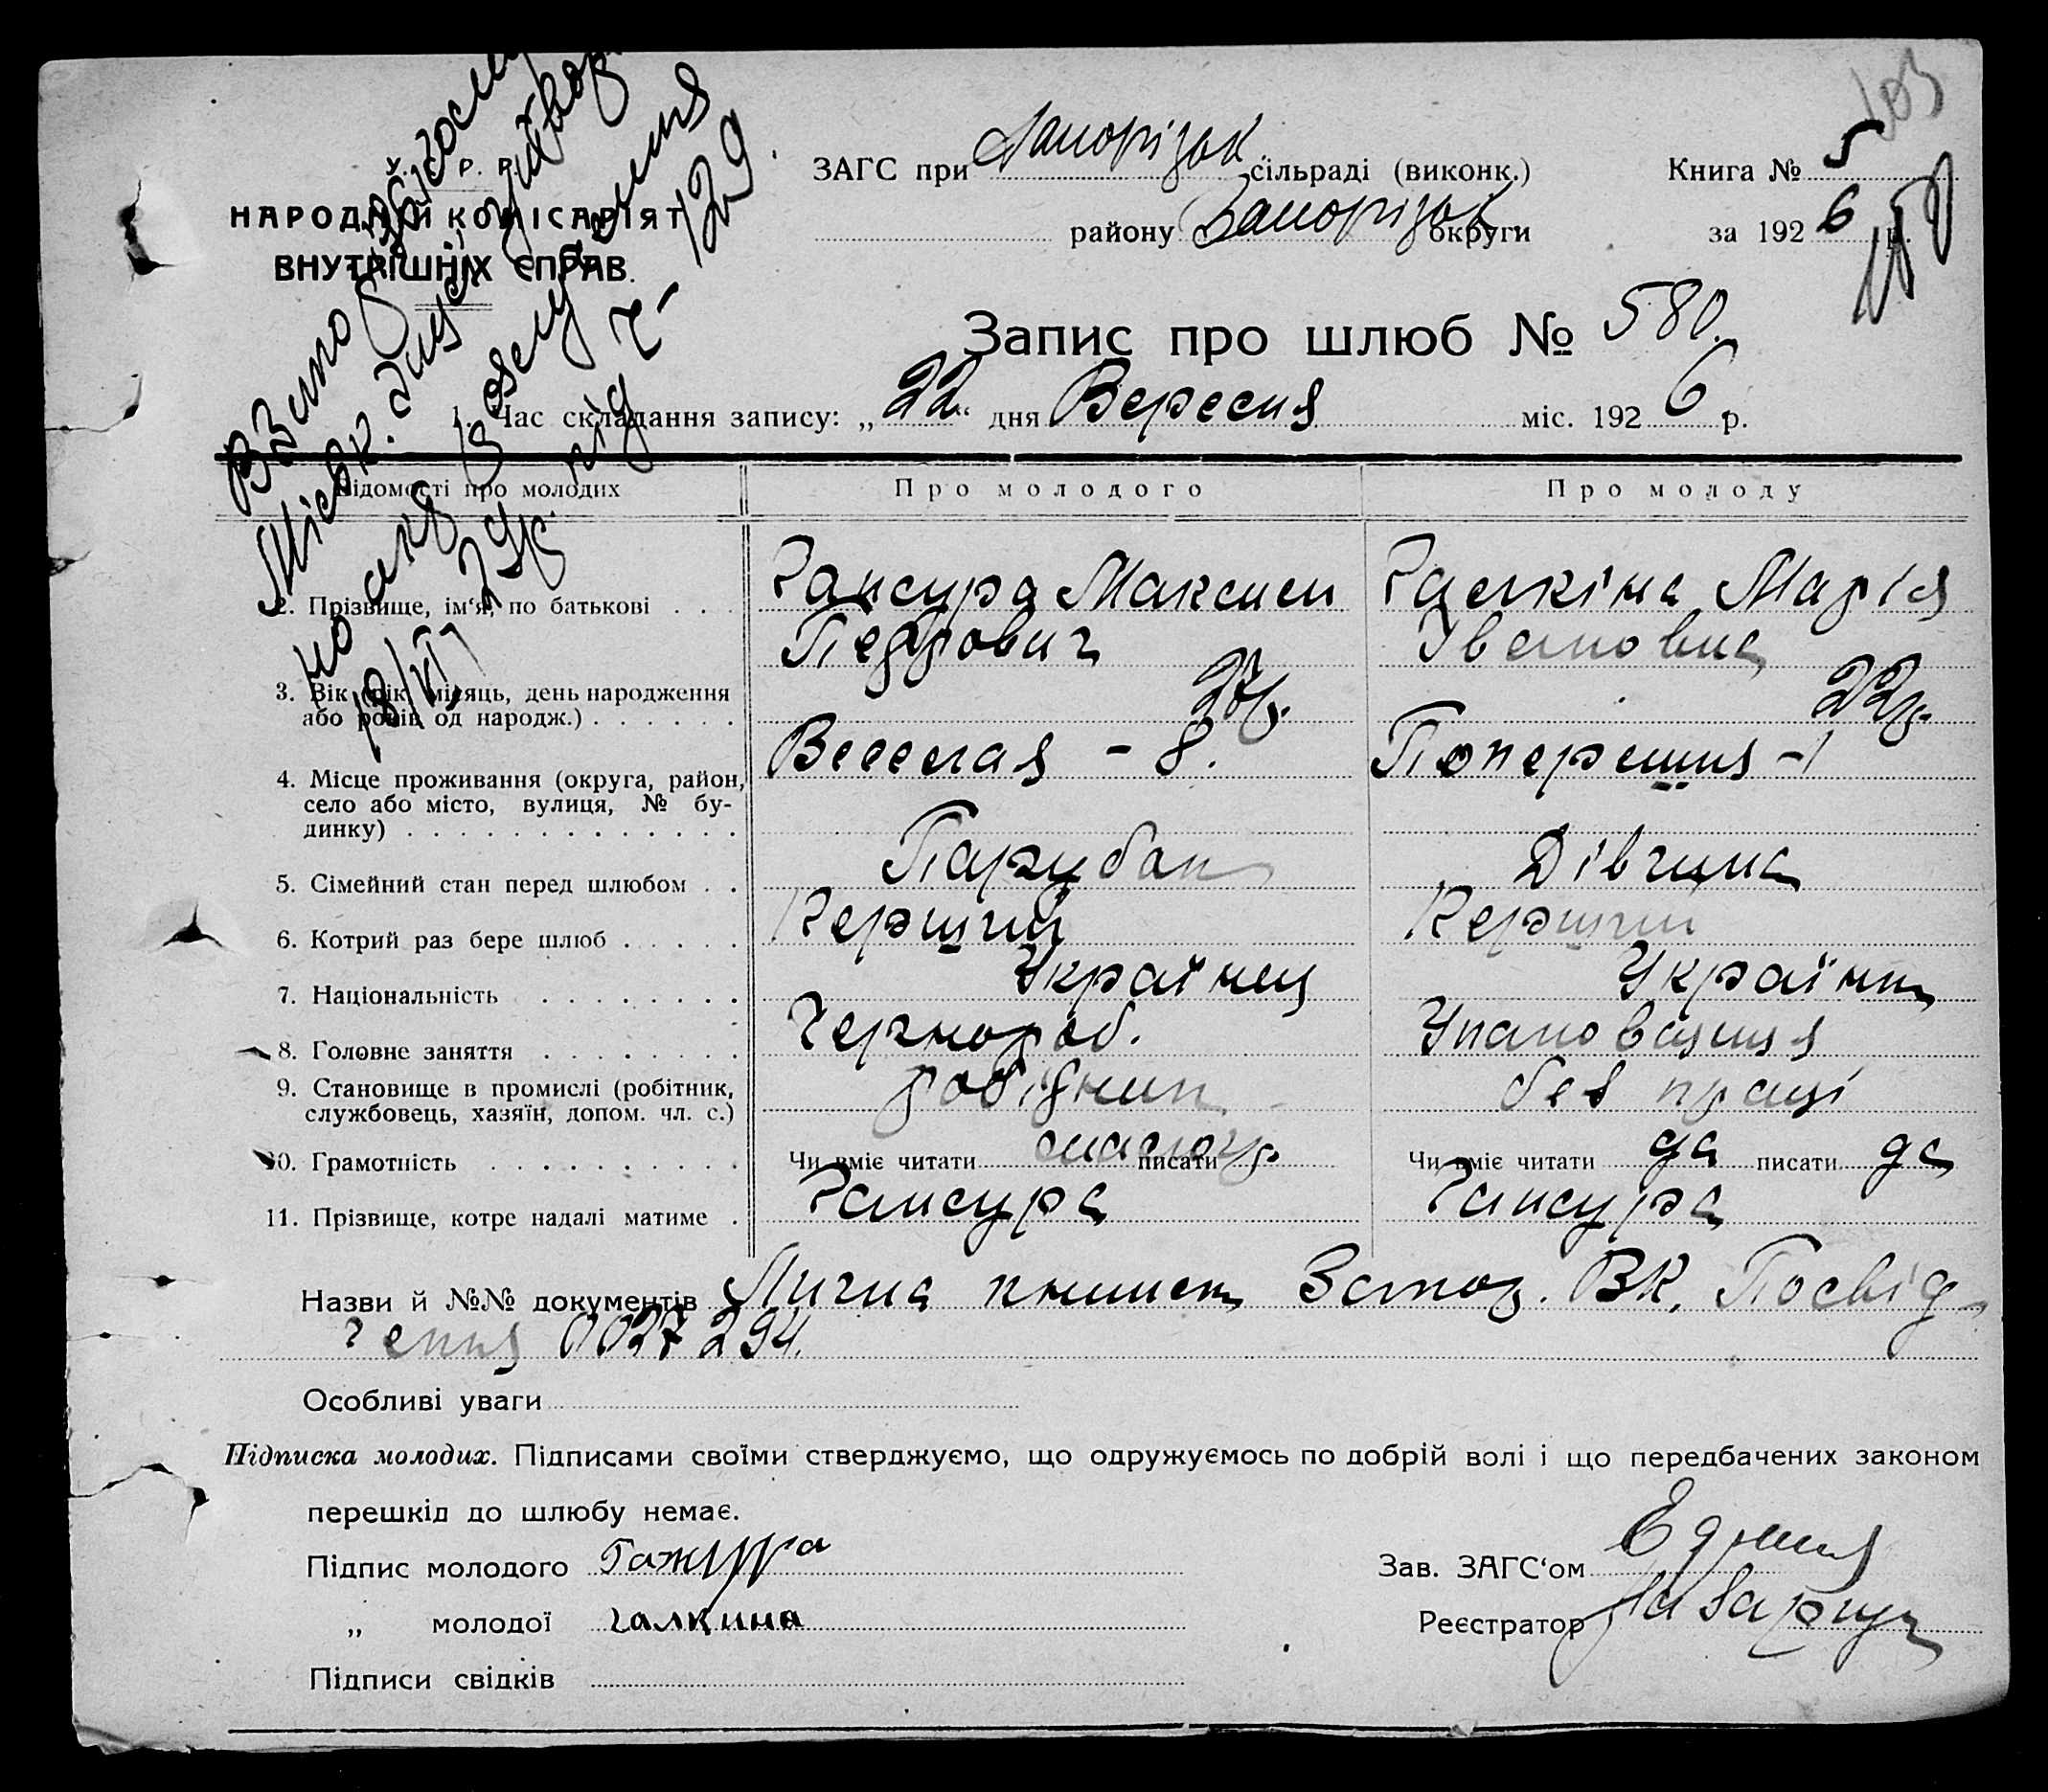 103
У. С. Р. Р.
НАРОДНІЙ КОМІСАРІЯТ
ВНУТРІШНІХ СПРАВ.
ЗАГС при Запорізьк. сільраді (виконк.)
району Запорізьк. округи
Книга № 5
за 1926 р.
Запис про шлюб № 580.
1. Час складання запису: „22“ дня Вересня міс. 1926 р.
Відомості про молодих
Про молодого
Про молоду
2. Прізвище, ім‘я, по батькові
Гансура Максим
Педрович
Галкіна Марія
Івановна
3. Вік (рік, місяць, день народження
або років од народж.)
27р.
22р.
4. Місце проживання (округа, район,
село або місто, вулиця, № бу-
динку)
Веселая – 8.
Поперешня – 1
5. Сімейний стан перед шлюбом
Парубок
Дівчина
6. Котрий раз бере шлюб
Перший
Перший
7. Національність
Українец
Українка
8. Головне заняття
Чернороб.
Упаковщиця
9. Становище в промислі (робітник,
службовець, хазяїн, допом. чл. с.)
робідник
без праці
10. Грамотність
Чи вміє читати малогр. писати
Чи вміє читати да писати да
11. Прізвище, котре надалі матиме
Гансура
Гансура
Назви й №№ документів Лична книжка Запор. ВК. Посвід
чення 0027294.
Особливі уваги
Підписка молодих. Підписами своїми стверджуємо, що одружуємось по добрій волі і що передбачених законом
перешкід до шлюбу немає.
Підпис молодого
„ молодої галкина
Зав. ЗАГС‘ом
Реєстратор
Підписи свідків